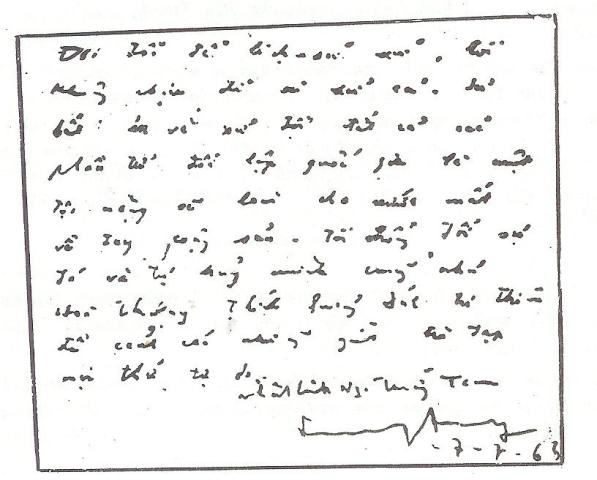 Đời tôi để lịch sử xử, tôi
không chịu để ai xử cả. Sự
bắt và xử tội tất cả các
phần tử đối lập quốc gia là một
tội nặng sẽ làm cho nước mất
về tay Cộng sản. Tôi chống đối sự
đó và tự hủy mình cũng như
Hòa Thượng Thích Quảng Đức tự thiêu
để cảnh cáo những người chà đạp
mọi thứ tự do.
Nhất Linh Nguyễn Tường Tam
7-7-63